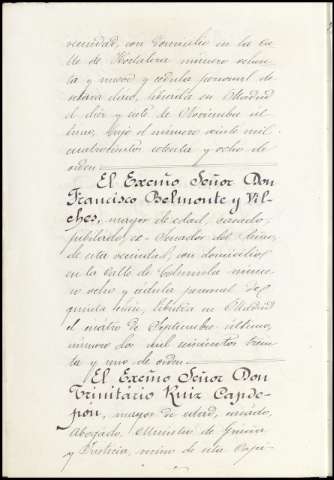 vecindad, con domicilio en la ca-
lle de Hortaleza numero ochen-
ta y nueve y cédula personal de
octava clase, librada en Madrid
el diez y siete de Noviembre úl-
timo, bajo el número veinte mil
cuatrocientos ochenta y ocho de
orden
El Excmo Señor Don
Francisco Belmonte y Vil-
ches, mayor de edad, casado,
jubilado, ex-Senador del Reino,
de esta vecindad, con domicilio
en la Calle de Columela núme-
ro ocho y cédula personal de
quinta clase, librada en Madrid
el cuatro de Septiembre último,
número dos mil quinientos trein-
ta y uno de orden.
El Excmo Señor Don
Trinitario Ruiz Capde-
pón, mayor de edad, casado,
Abogado, Ministro de Gracia
y Justicia, vecino de esta Capi-